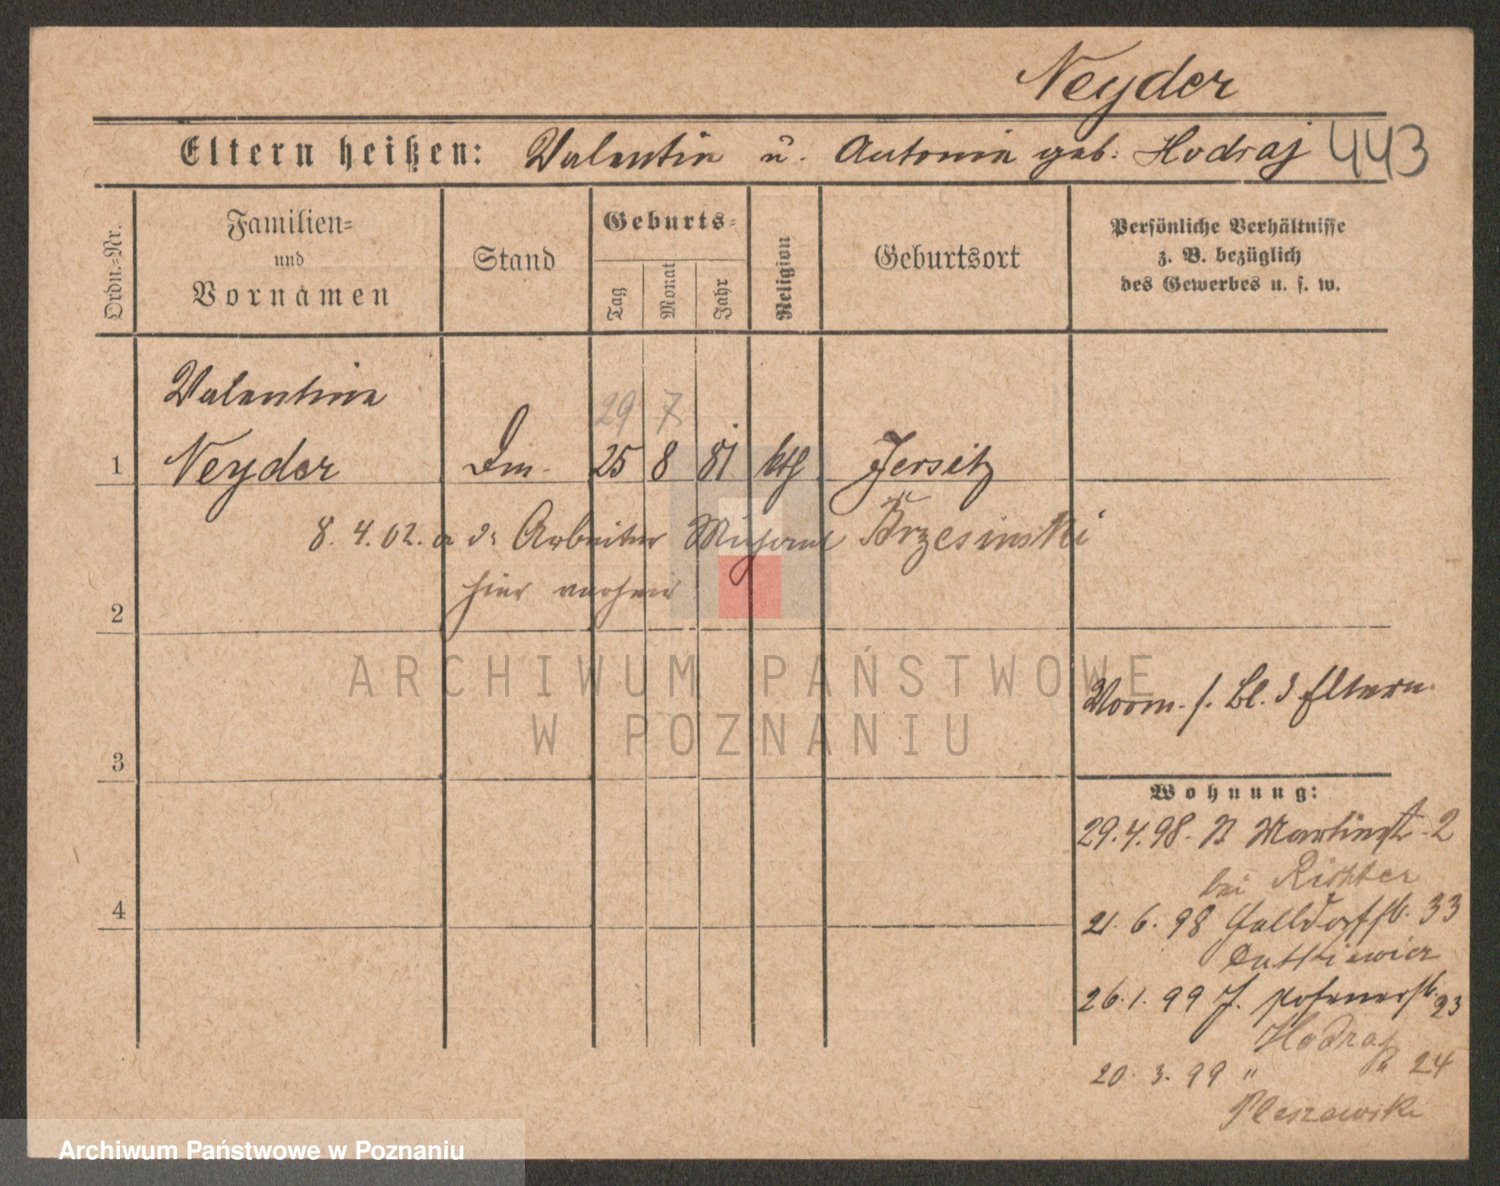 Neyder
Eltern heißen: Valentin u. Antonia geb. Hodraj 443
Ordn.-Nr.
Familien-
und
Vornamen
Stand
Geburts-
Tag
Monat
Jahr
Religion
Geburtsort
Persönliche Verhältnisse
z. B. bezüglich
des Gewerbes u. s. w.
Valentina
29 7
1 Neyder 25 8 81 kth Jersitz
8. 4. 02. a d. Arbeiter Brzesinski
hier
2
ARCHIWUM PAŃSTWOWE
W POZNANIU
Vorm. s. Bl. d Eltern
3
Wohnung:
29.4.98. Martinst. 2
bei Richter
4
21. 6. 98 33
26. 1. 99 J. Posenerstr. 23
Hodraj
20. 3. 99 " 24
Pleszewski
Archiwum Państwowe w Poznaniu